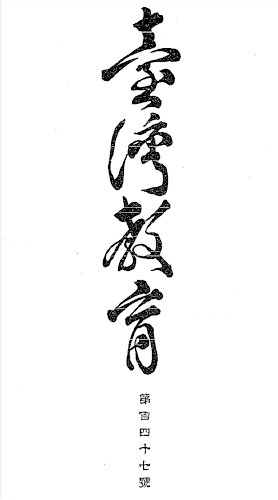 臺灣教育
第百四十七號